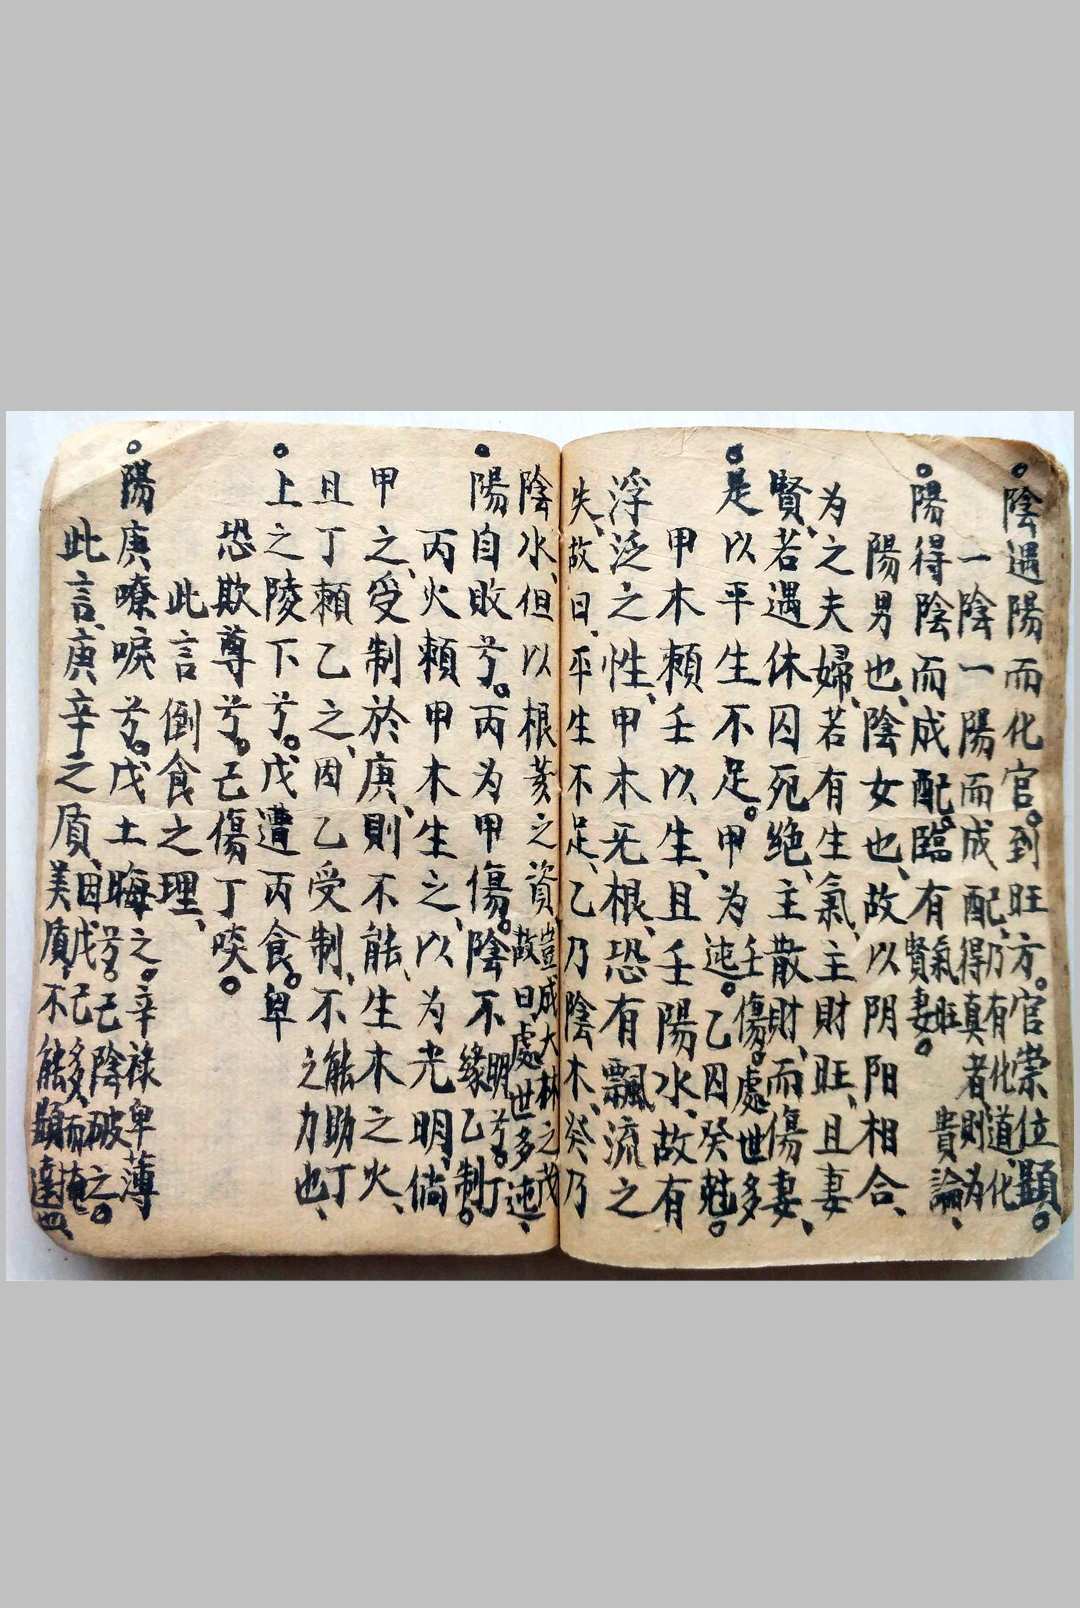 陰遇陽而化官。到旺方。官崇位顯。
一陰一陽而成配、乃有化道、化得真者、則为貴論、
陽得陰而成配。臨有氣旺賢妻。
陽男也、陰女也、故以阴阳相合、
为之夫婦、若有生氣、主財旺、且妻
賢、若遇休囚死絶、主散財、而傷妻、
是以平生不足。甲为壬傷。處世多迍。乙囚癸尅。
甲木賴壬以生、且壬陽水、故有
浮泛之性、甲木无根、恐有飄流之
失、故曰、平生不足、乙乃陰木、癸乃
陰水、但以根荄之資、豈成大林之茂、故曰處世多迍、
陽自敗兮。丙为甲傷。陰不明兮。丁緣乙制。
丙火賴甲木生之、以为光明、倘
甲之受制於庚、則不能生木之火、
且丁賴乙之、因乙受制、不能助丁之力也、
上之陵下兮。戊遭丙食。卑
恐欺尊兮。己傷丁啖。
此言倒食之理、
陽庚嘹唳兮。戊土晦之。辛禄卑薄兮。己陰破之。
此言、庚辛之質、因戊己多而掩美質、不能顯達也、